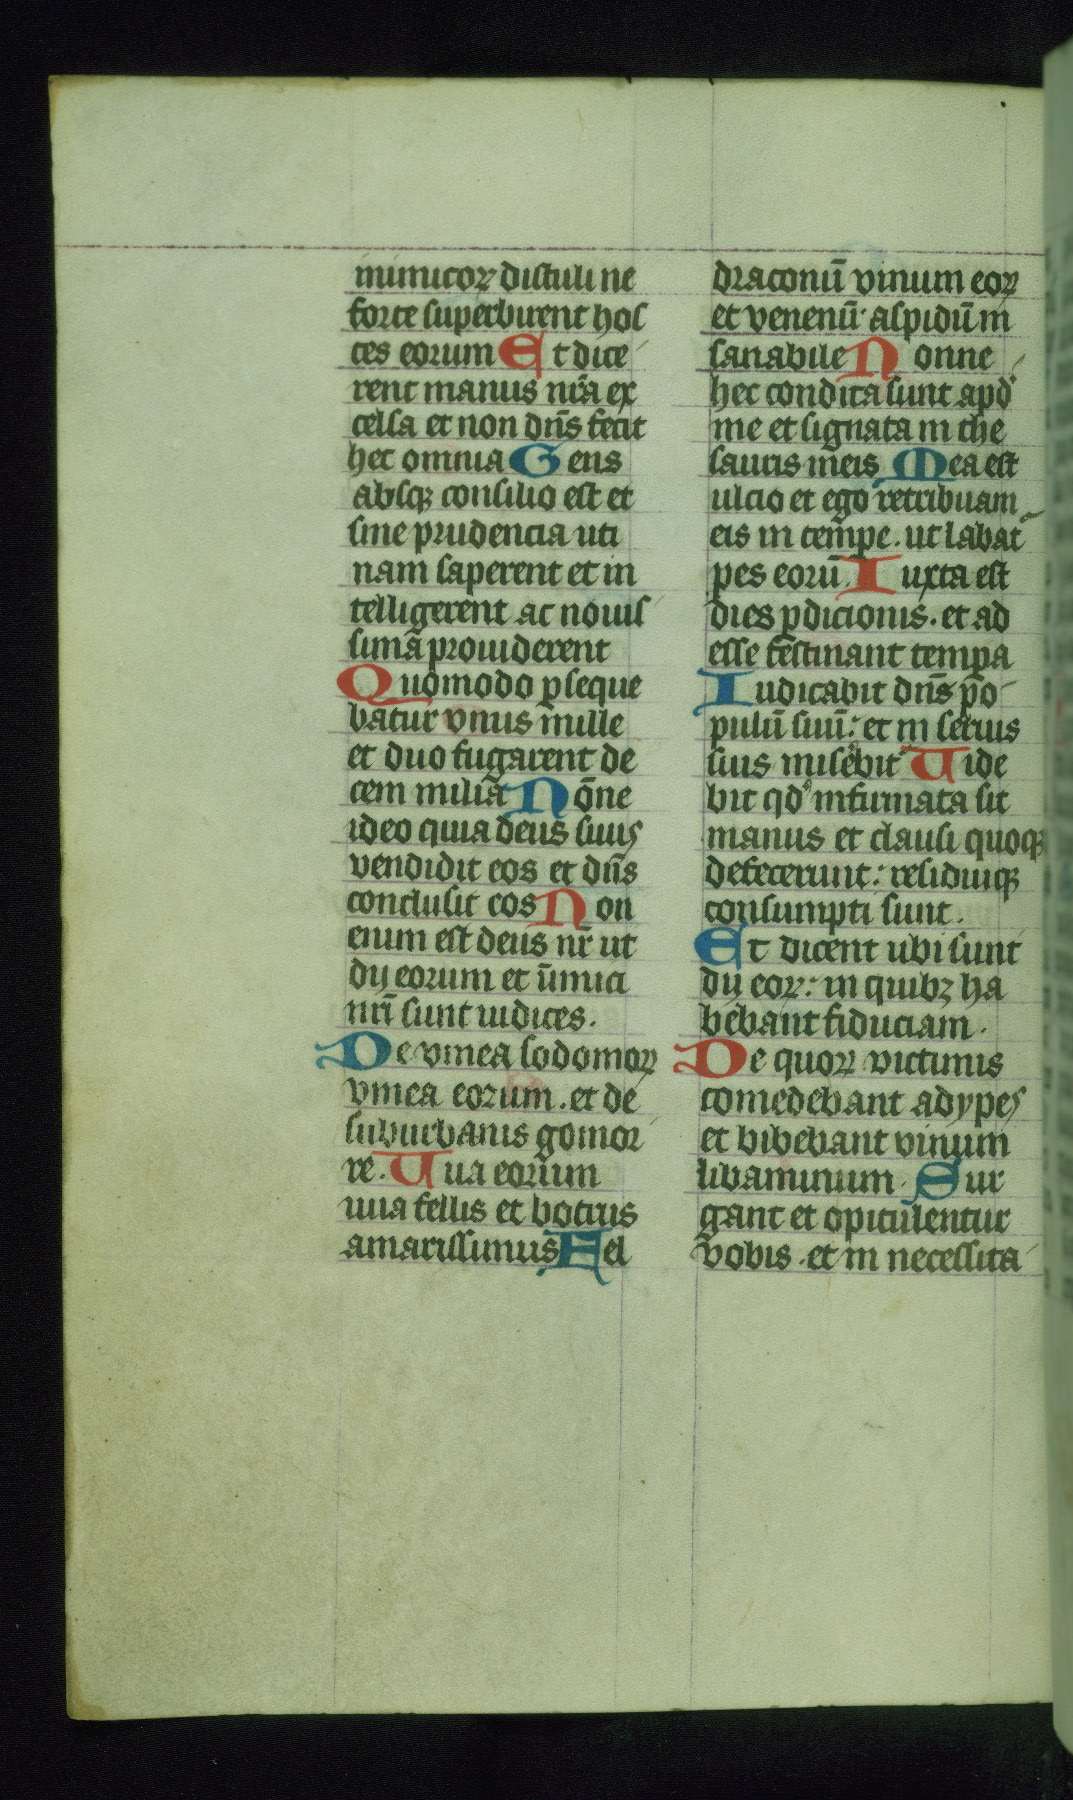 inimicoꝝ distuli ne
forte superbirent hos
tes eorum Et dice
rent manus nr̄a ex
celsa et non dn̄s fecit
hec omnia Gens
absqꝫ consilio est et
sine prudencia uti
nam saperent et in
telligerent ac nouis
simā prouiderent
Quomodo ꝑseque
batur vnus mille
et duo fugarent de
cem milia Nōne
ideo quia deus suus
vendidit eos et dn̄s
conclusit eos Non
enim est deus nr̄ ut
dij eorum et īnimici
nr̄i sunt iudices.
De vinea sodomoꝝ
vinea eorum. et de
suburbanis gomor
re. Uua eorum
uua fellis et botrus
amarissimus Fel
draconū vinum eoꝝ
et venenū aspidū in
sanabile Nonne
hec condita sunt apd
me et signata in the
sauris meis Mea est
ulcio et ego retribuam
eis in temꝑe. ut labat
pes eorū. Iuxta est
dies ꝑdicionis. et ad
esse festinant temꝑa
Iudicabit dn̄s po
pulū suū: et in seruis
suis misebit Uide
bit qd infirmata sit
manus et clausi quoqꝫ
defecerunt: residuiqꝫ
consumpti sunt.
Et dicent ubi sunt
dij eoꝝ: in quibꝫ ha
bebant fiduciam.
De quoꝝ victimis
comedebant adypes
et bibebant vinum
libaminum. Sur
gant et opitulentur
vobis. et in necessita